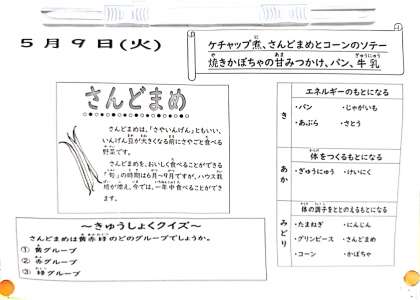 5月9日(火)
ケチャップ煮、さんどまめとコーンのソテー
焼きかぼちゃの甘みつかけ、パン、牛乳
さんどまめ
さんどまめは、「さやいんげん」ともいい、
いんげん豆が大きくなる前にさやごと食べる
野菜です。
さんどまめを、おいしく食べることができる
「旬」の時期は6月~9月ですが、ハウス栽
培が増え、今では、一年中食べることができ
ます。
~きゅうしょくクイズ~
さんどまめは黄赤緑のどのグループでしょうか。
① 黄グループ
② 赤グループ
③ 緑グループ
き
エネルギーのもとになる
・パン ・じゃがいも
・あぶら ・さとう
あか
体をつくるもとになる
・ぎゅうにゅう ・けいにく
みどり
体の調子をととのえるもとになる
・たまねぎ ・にんじん
・グリンピース ・さんどまめ
・コーン ・かぼちゃ